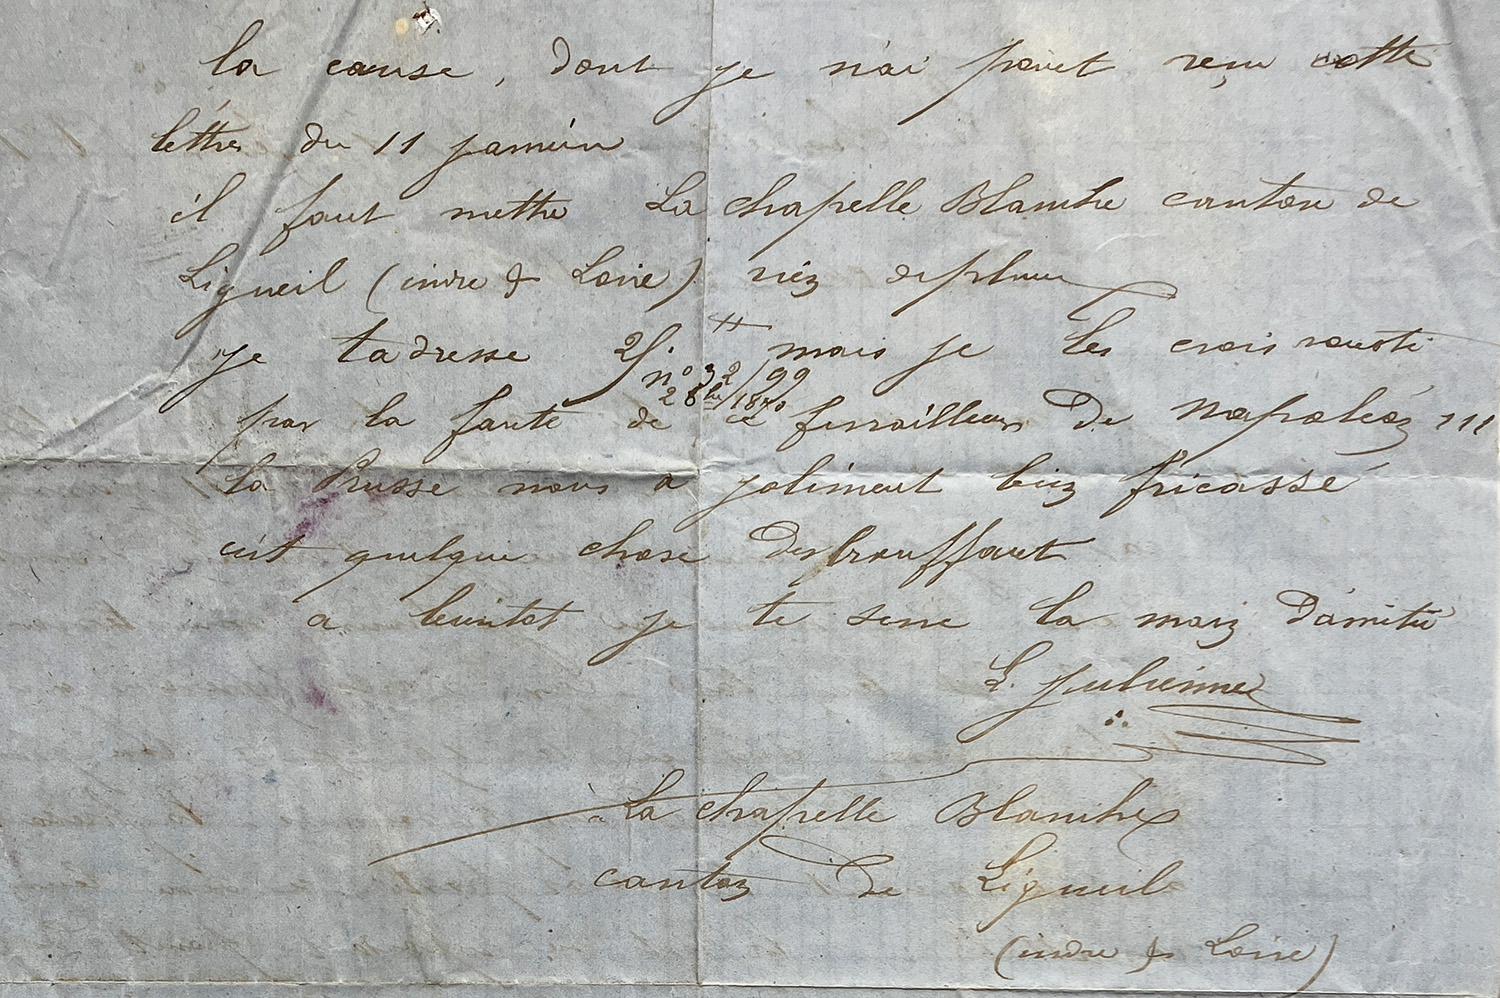 la cause, dont je n'ai point reçu cette
lettre du 11 janvier
il faut mettre La chapelle Blanche canton de
Ligueil (indre & Loire) riez de plus
je t'adresse 2f. mais je les crois rousti
n° 32/99
28 bre/1870
par la faute de ce ferrailleur De Napoléon III
la Prusse nous a joliment bien fricassé
c'est quelque chose d'esbrouffant
a bientot je te serre la main D'amitié
L. Julienne
à La chapelle Blanche
canton De Ligueil
(indre & Loire)